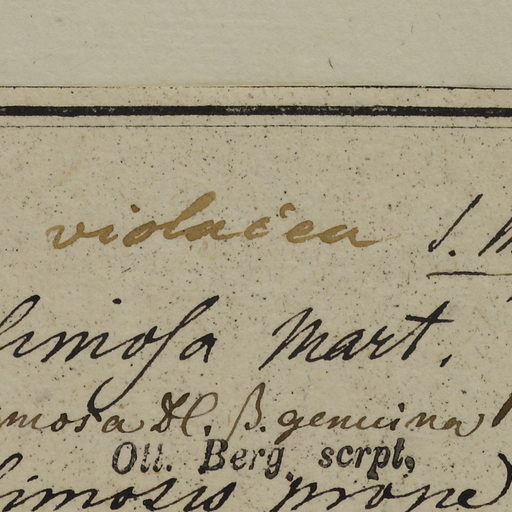 violacea S.
limosa Mart.
mosa DC. β. genuina
Ott. Berg. scrpt,
limosis prope